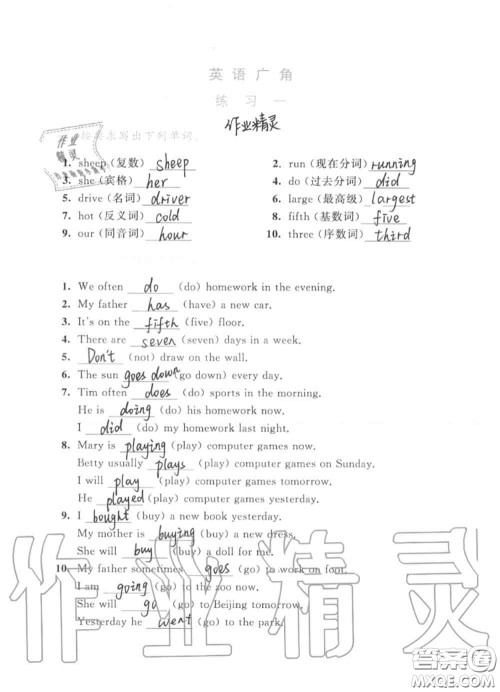 英语广角
练习一
作业精灵
按要求写出下列单词。
作业
精灵
1. sheep(复数) sheep 2. run(现在分词) running
3. she(宾格) her 4. do(过去分词) did
5. drive(名词) driver 6. large(最高级) largest
7. hot(反义词) cold 8. fifth(基数词) five
9. our(同音词) hour 10. three(序数词) third
1. We often do (do) homework in the evening.
2. My father has (have) a new car.
3. It's on the fifth (five) floor.
4. There are seven (seven) days in a week.
5. Don't (not) draw on the wall.
6. The sun goes down (go down) every day.
7. Tim often does (do) sports in the morning.
He is doing (do) his homework now.
I did (do) my homework last night.
8. Mary is playing (play) computer games now.
Betty usually plays (play) computer games on Sunday.
I will play (play) computer games tomorrow.
He played (play) computer games yesterday.
9. I bought (buy) a new book yesterday.
My mother is buying (buy) a new dress.
She will buy (buy) a doll for me.
10. My father sometimes goes (go) to work on foot.
I am going (go) to the zoo now.
She will go (go) to Beijing tomorrow.
Yesterday he went (go) to the park.
作业精灵
答案圈
MXQE.COM